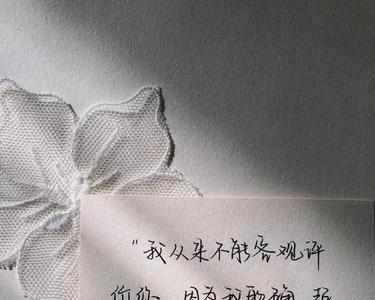 "我从来不能客观评
价你，因为我